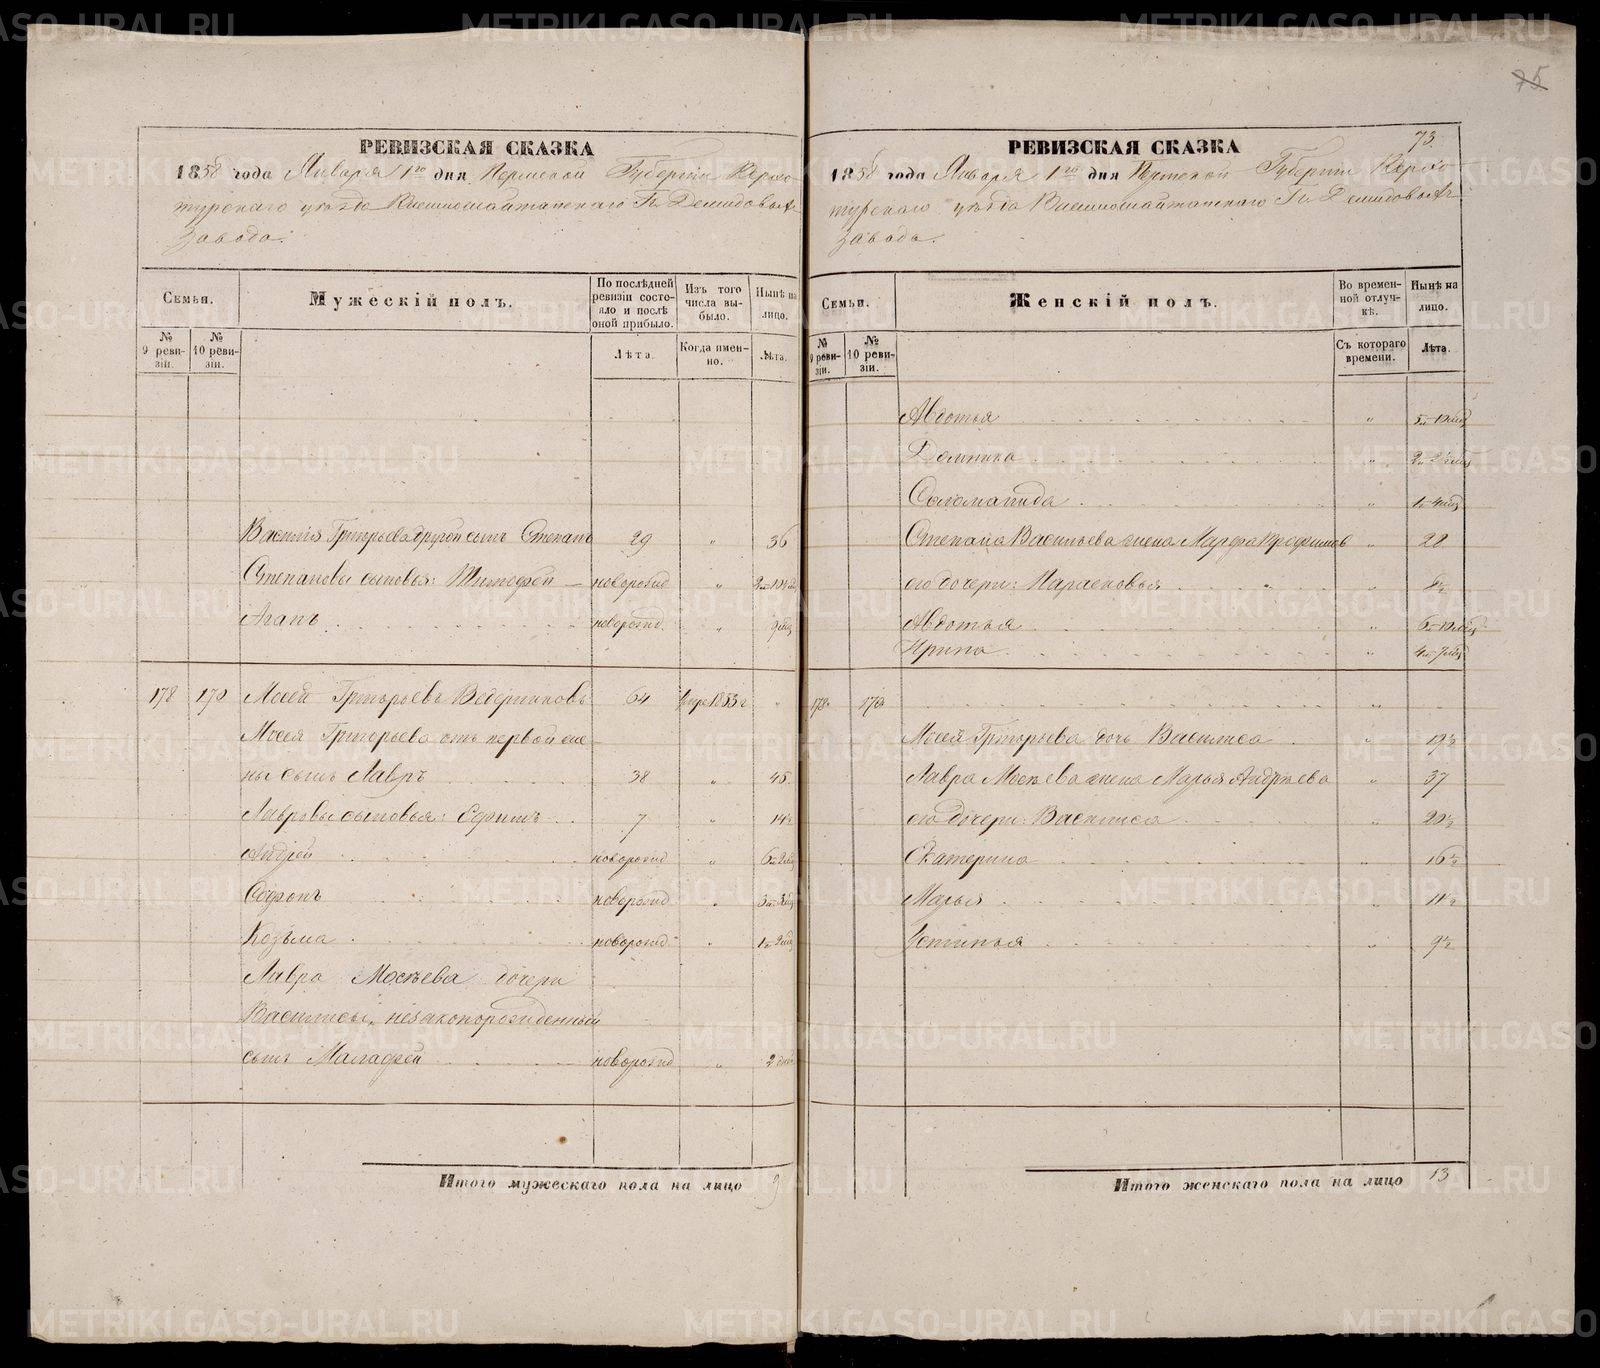 75
РЕВИЗСКАЯ СКАЗКА
1858 года Января 1го дня Пермской Губерніи Верхо-
турскаго уѣзда Висимошайтанскаго Гг. Демидовыхъ
завода.
Семьи.
Мужескій полъ.
По послѣдней ревизіи состо-яло и послѣ оной прибыло.
Изъ того числа вы-было.
Нынѣ на лицо.
№ 9 реви-зіи.
№ 10 реви-зіи.
Лѣта.
Когда имен-но.
Лѣта.
Василья Григорьева другой сынъ Степанъ 29 " 36
Степановы сыновья: Тимофей новорожд "
Агапъ новорожд. "
178 170 Мосей Григорьевъ Ведерниковъ 64 1853 г "
Мосея Григорьева отъ первой же-
ны сынъ Лавръ 38 " 45
Лавровы сыновья: Ефимъ 7 " 14½
Андрей новорожд "
Софонъ новорожд "
Козьма новорожд "
Лавра Мосѣева дочери
Василисы, незаконорожденный
сынъ Малафей новорожд "
Итого мужескаго пола на лицо 9
73.
РЕВИЗСКАЯ СКАЗКА
1858 года Января 1го дня Пермской Губерніи Верхо-
турскаго уѣзда Висимошайтанскаго Гг. Демидовыхъ
завода.
Семьи.
Женскій полъ.
Во времен-ной отлуч-кѣ.
Нынѣ на лицо.
№ 9 реви-зіи.
№ 10 реви-зіи.
Съ котораго времени.
Лѣта.
Авдотья "
Домника "
Соломанида "
Степана Васильева жена Марфа Трофимов " 28
его дочери: Парасковья "
Авдотья "
Ирина "
178 170 "
Мосея Григорьева дочь Василиса " 19½
Лавра Мосѣева жена Марья Андрѣева " 37
его дочери: Василиса " 20½
Екатерина " 16½
Марья " 11½
Устинья " 9½
Итого женскаго пола на лицо 13
METRIKI.GASO-URAL.RU